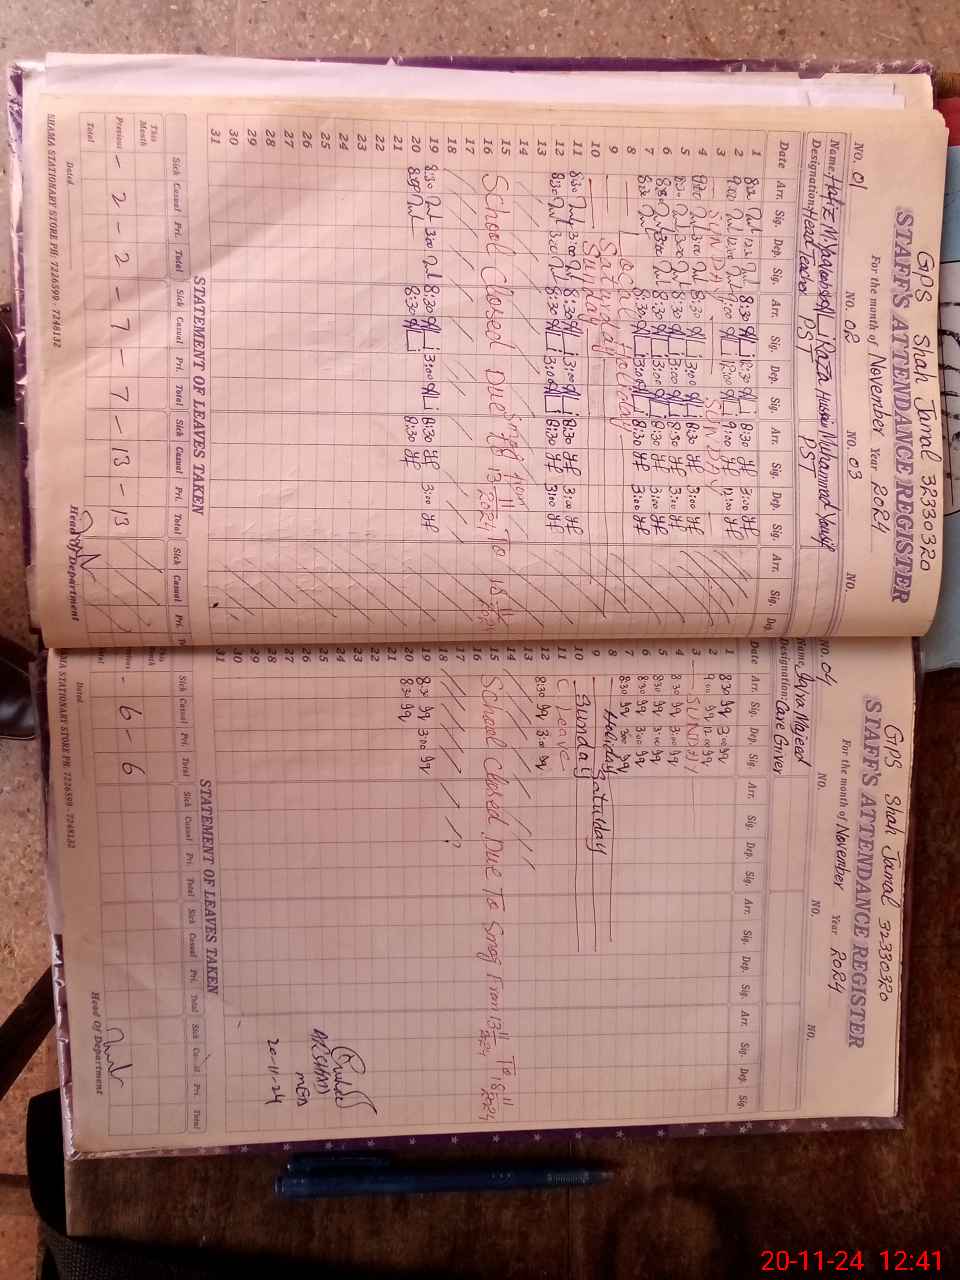 GPS Shah Jamal 32330320
STAFF'S ATTENDANCE REGISTER
For the month of November Year 2024
NO. 01 NO. 02 NO. 03 NO.
Name, Hafiz Raza Hussain Muhammad Yousif
Designation: Head Teacher PST PST
Date Arr. Sig. Dep. Sig. Arr. Sig. Dep. Sig. Arr. Sig. Dep. Sig. Arr. Sig. Dep.
1 8:30 12:30 3:00
2 9:00 12:00 9:00 12:00 9:00 12:00
3 SUNDAY SUNDAY
4 3:00 8:30 3:00 8:30 3:00
5 8:30 3:00 8:30 3:00 8:30 3:00
6 8:30 3:00 8:30 3:00 8:30 3:00
7 8:30 3:00 8:30 3:00 8:30 3:00
8 Local Holiday
9 Saturday
10 Sunday
11 8:30 3:00 8:30 3:00 8:30 3:00
12 8:30 3:00 8:30 3:00 8:30 3:00
13
14
15
16 School Closed Due To smog from 13 11/2024 To 18 11/2024
17
18
19 8:30 3:00 8:30 3:00 8:30 3:00
20 8:30 8:30 8:30
21
22
23
24
25
26
27
28
29
30
31
STATEMENT OF LEAVES TAKEN
Sick Casual Pri. Total Sick Casual Pri. Total Sick Casual Pri. Total Sick Casual Pri.
This Month
Previous - 2 - 2 - 7 - 7 - 13 - 13
Total
Dated Head Of Department
SHAMA STATIONARY STORE PH: 7226599 - 7248132
GPS Shah Jamal 32330320
STAFF'S ATTENDANCE REGISTER
For the month of November Year 2024
NO. 04 NO. NO. NO.
Name, Majeed
Designation: Care Giver
Date Arr. Sig. Dep. Sig. Arr. Sig. Dep. Sig. Arr. Sig. Dep. Sig. Arr. Sig. Dep. Sig.
1 8:30 3:00
2 9:00 12:00
3 SUNDAY
4 8:30 3:00
5 8:30 3:00
6 8:30 3:00
7 8:30 3:00
8 Holiday
9 Saturday
10 Sunday
11 C Leave
12 8:30 3:00
13
14
15 School Closed Due To Smog From 13 11/2024 To 18 11/2024
16
17
18
19 8:30 3:00
20 8:30
21
22
23
24
25
26
27
28
29
30
31
ARSHAD
MEA
20-11-24
STATEMENT OF LEAVES TAKEN
Sick Casual Pri. Total Sick Casual Pri. Total Sick Casual Pri. Total Sick Casual Pri. Total
- 6 - 6
Dated Head Of Department
SHAMA STATIONARY STORE PH: 7226599 - 7248132
20-11-24 12:41